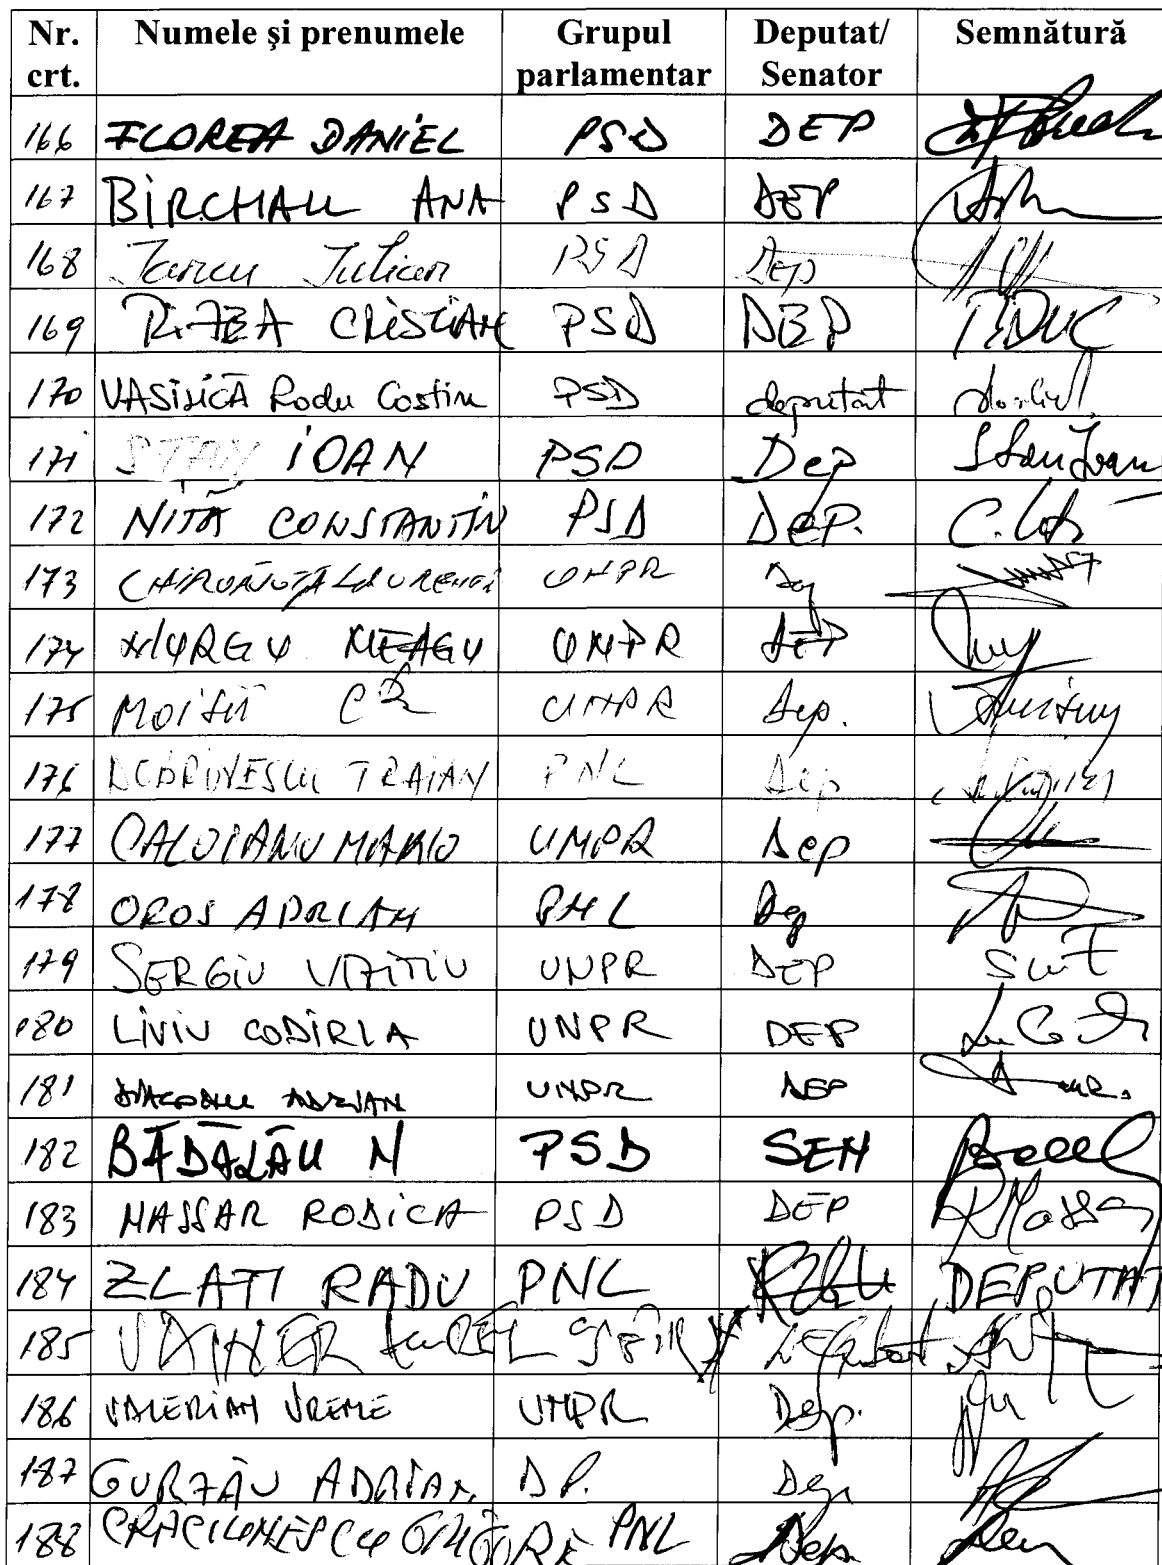 Nr. crt. Numele şi prenumele Grupul parlamentar Deputat/ Senator Semnătură
166 FLOREA DANIEL PSD DEP
167 BIRCHALL ANA PSD DEP
168 Iancu Iulian PSD Dep
169 RIZEA CRISTIAN PSD DEP
170 VASILICĂ Radu Costin PSD deputat
171 STAN IOAN PSD Dep Stan Ioan
172 NIȚĂ CONSTANTIN PSD DEP.
173 CHIRUȚĂ LAURENȚI UNPR Dep
174 MURGU NEAGU UNPR DEP
175 MOISII C UNPR Dep.
176 DOBRINESCU TRAIAN PNL Dep
177 CALOIANU MARIO UNPR Dep
178 OROS ADRIAN PNL Dep
179 SERGIU VIZITIU UNPR DEP
180 LIVIU CODIRLA UNPR DEP
181 DIACONU ADRIAN UNPR DEP
182 BĂDĂLĂU N PSD SEN
183 NASSAR RODICA PSD DEP RNassar
184 ZLATI RADU PNL DEPUTAT
185 VAINER AUREL Deputat
186 VALERIAN VREME UNPR Dep.
187 GURZĂU ADRIAN D.P. Dep
188 CRACIUNESCU GRIGORE PNL Dep